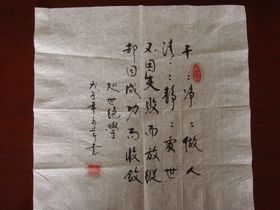 干〻净〻做人
清〻静〻處世
不因失败而放縱
却因成功而收斂
处世绝學
戊子年